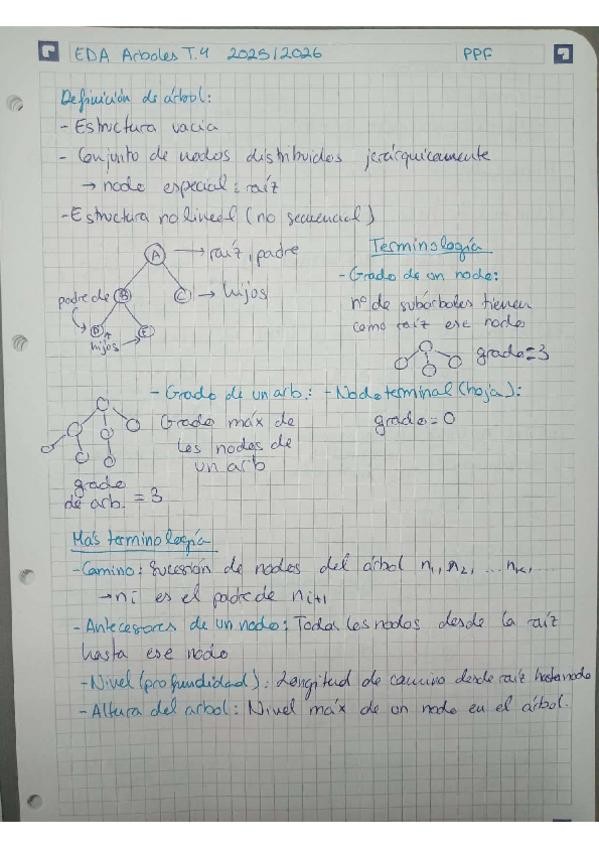 EDA Arboles T.4 2025/2026 PPF
Definición de árbol:
- Estructura vacia
- Conjunto de nodos distribuidos jerárquicamente
→ nodo especial: raíz
- Estructura no lineal (no secuencial)
A → raíz, padre
padre de B C → hijos
D E
hijos
Terminología
- Grado de un nodo:
nº de subárboles tienen
como raíz ese nodo
grado=3
- Grado de un arb.:
Grado máx de
los nodos de
un arb
- Nodo terminal (hoja):
grado=0
grado
de arb. = 3
Más terminología
- Camino: Sucesión de nodos del árbol n1, n2, ... nk, ...
→ ni es el padre de ni+1
- Antecesores de un nodo: Todos los nodos desde la raíz
hasta ese nodo
- Nivel (profundidad): Longitud de camino desde raíz hasta nodo
- Altura del arbol: Nivel máx de un nodo en el árbol.